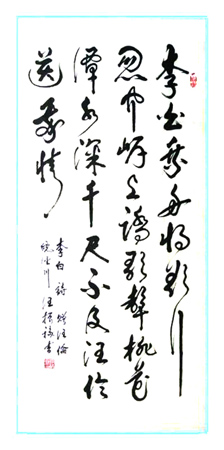 李白乘舟將欲行
忽聞岸上踏歌聲桃花
潭水深千尺不及汪倫
送我情
李白詩 贈汪倫
川 汪振 書